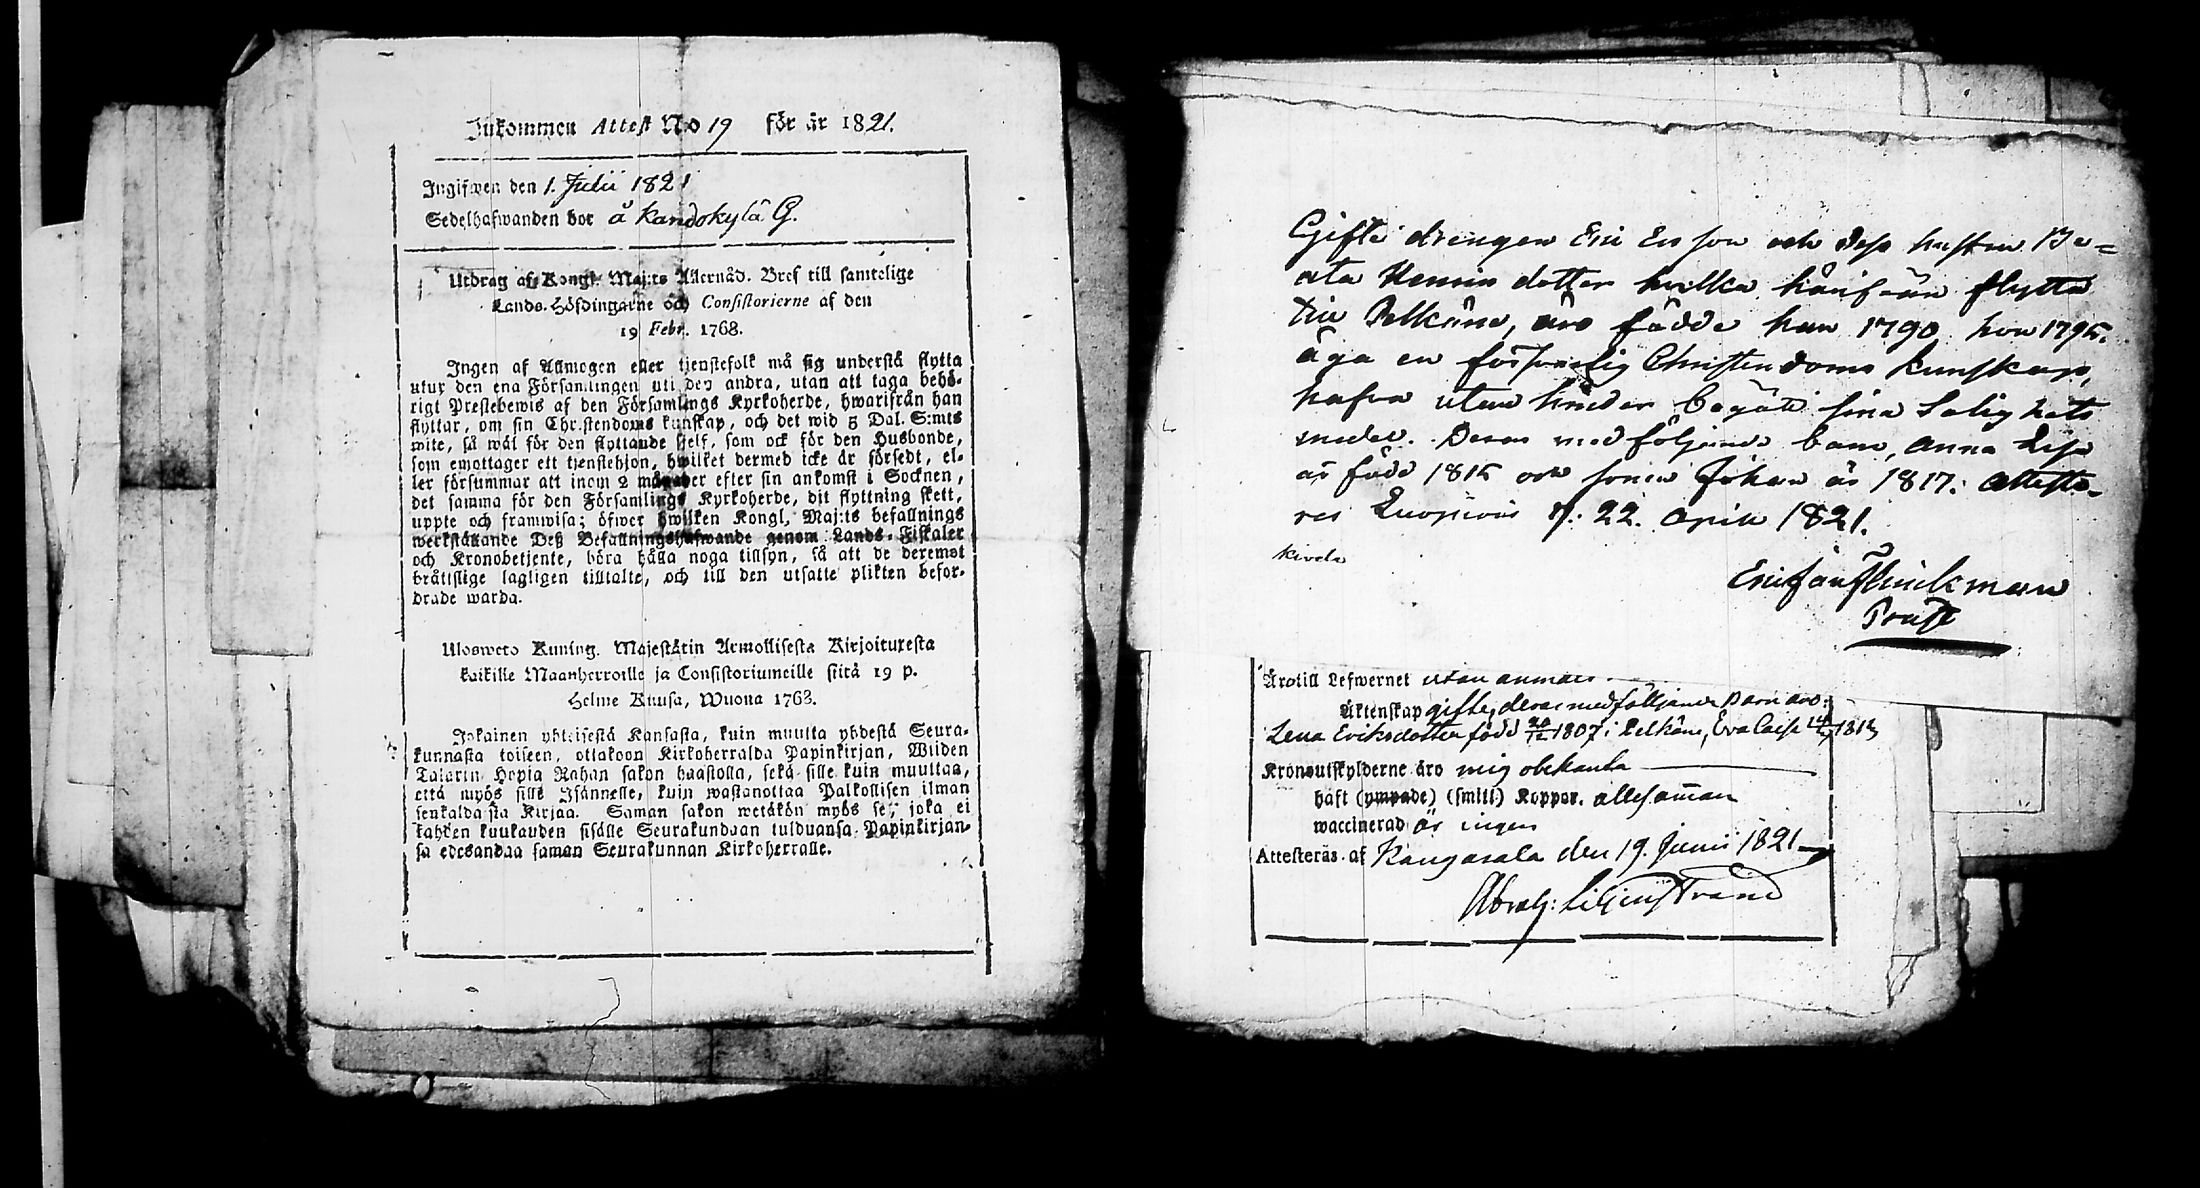 Inkommen Attest No 19 för år 1821.
Ingifwen den 1. Julii 1821
Sedelhafwanden bor å Kandokylä G.
Utdrag af Kongl. Maj:ts Allernåd. Bref till samtelige
Lands-Höfdingarne och Consistorierne af den
19 Febr. 1768.
Ingen af Allmogen eller tjenstefolk må sig understå flytta
utur den ena Församlingen uti den andra, utan att taga behö-
rigt Prestebewis af den Församlings Kyrkoherde, hwarifrån han
flyttar, om sin Christendoms kunskap, och det wid 5 Dal. S:mts
wite, så wäl för den flyttande sjelf, som ock för den Husbonde,
som emottager ett tjenstehjon, hwilket dermed icke är försedt, el-
ler försummar att inom 2 månader efter sin ankomst i Socknen,
det samma för den Församlings Kyrkoherde, dit flyttning skett,
uppte och framwisa; öfwer hwilken Kongl. Maj:ts befallnings
werkställande Deß Befallningshafwande genom Lands-Fiskaler
och Kronobetjente, böra hålla noga tillsyn, så att de deremot
bråttslige lagligen tilltalte, och till den utsatte plikten befor-
drade warda.
Ulosweto Kuning. Majestätin Armollisesta Kirjoituxesta
kaikille Maanherroille ja Consistoriumeille siitä 19 p.
Helme Kuusa, Wuona 1768.
Jokainen yhteisestä Kansasta, kuin muutta yhdestä Seura-
kunnasta toiseen, ottakoon Kirkoherralda Papinkirjan, Wiiden
Talarin Hopia Rahan sakon haastolla, sekä sille kuin muuttaa,
että myös sille Isännelle, kuin wastanottaa Palkollisen ilman
senkaldaista Kirjaa. Saman sakon wetäkön myös se, joka ei
kahden kuukauden sisälle Seurakundaan tulduansa Papinkirjan-
sa edesandaa saman Seurakunnan Kirkoherralle.
Gifte drengen Eric Ersson och dess hustru Be-
ata Henrics dotter hvilka härifrån flytta
till Pelkäne, äro födde han 1790 hon 1795.
äga en försvarlig Christendoms kunskap,
hafva utan hinder begått sina Salighets
medel. Deras medföljande barn, Anna Lisa
är född 1815 och sonen Johan är 1817. Atteste-
res 22. April 1821.
Ericjan Thuickman
Äro till Lefwernet utan anmärk.
Äktenskap gifte, deras medföljande Barn äro:
Lena Eriksdotter född 20/12 1807 i Pelkäne, Eva Caisa 1813
Kronoutskylderne äro mig obekanta
haft (ympade) (smitt) Koppor. allesamman
waccinerad är ingen
Attesteras af Kangasala den 19. Junii 1821
Abrah: Liljenstrand